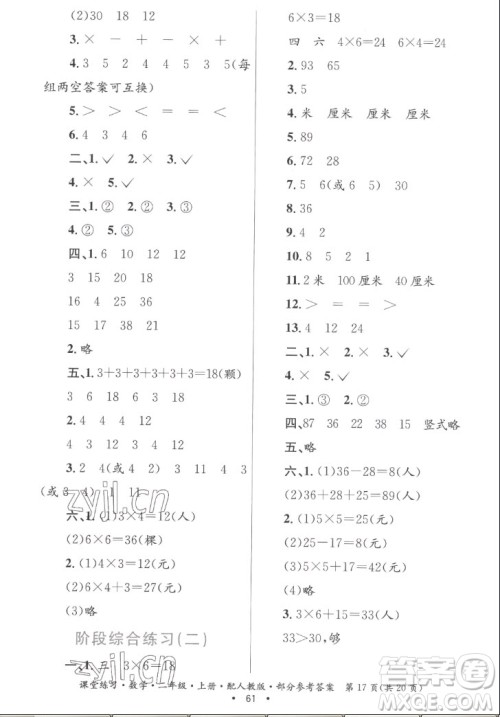 (2)30 18 12
3.× － ＋ － ＋ － ×
4.3 5 2 4 5 3 5(每
组两空答案可互换)
5.＞ ＞ ＝ ＝ ＜
6.4 3 4 6
二、1.✓ 2.× 3.✓
4.× 5.✓
三、1.② 2.② 3.①
4.② 5.②
四、1.6 10 12 12
3 15 18 20
16 4 25 36
15 24 30 9
2.略
五、1.3+3+3+3+3+3=18(颗)
3 6 6 3 18
2.4 4 4 12
3.2 4(或4 2) 1 4 3
(或3 4) 1 11
六、1.(1)3×4=12(人)
(2)6×6=36(棵)
2.(1)4×3=12(元)
(2)6×4+3=27(元)
(3)略
阶段综合练习(二)
一、1.五 三 3×6=18
6×3=18
四 六 4×6=24 6×4=24
2.93 65
3.18
4.米 厘米 厘米 米
5.89
6.72 28
7.5 6(或6 5) 30
8.36
9.4
10.8 5 2 1
11.2米 100厘米 40厘米
12.＞ ＝ ＝ ＜
13.4
二、1.× 2.✓ 3.×
4.× 5.✓
三、1.③ 2.③ 3.③
四、87 36 22 38 15 竖式略
五、略
六、1.(1)36－28=8(人)
(2)36+28+8=72(人)
2.(1)5×5=25(元)
(2)25－18=7(元)
3.(1)6×5+3=33(人)
33＞30,够
课堂练习·数学·二年级·上册·配人教版·部分参考答案 第17页(共20页)
61
zyjl.cn